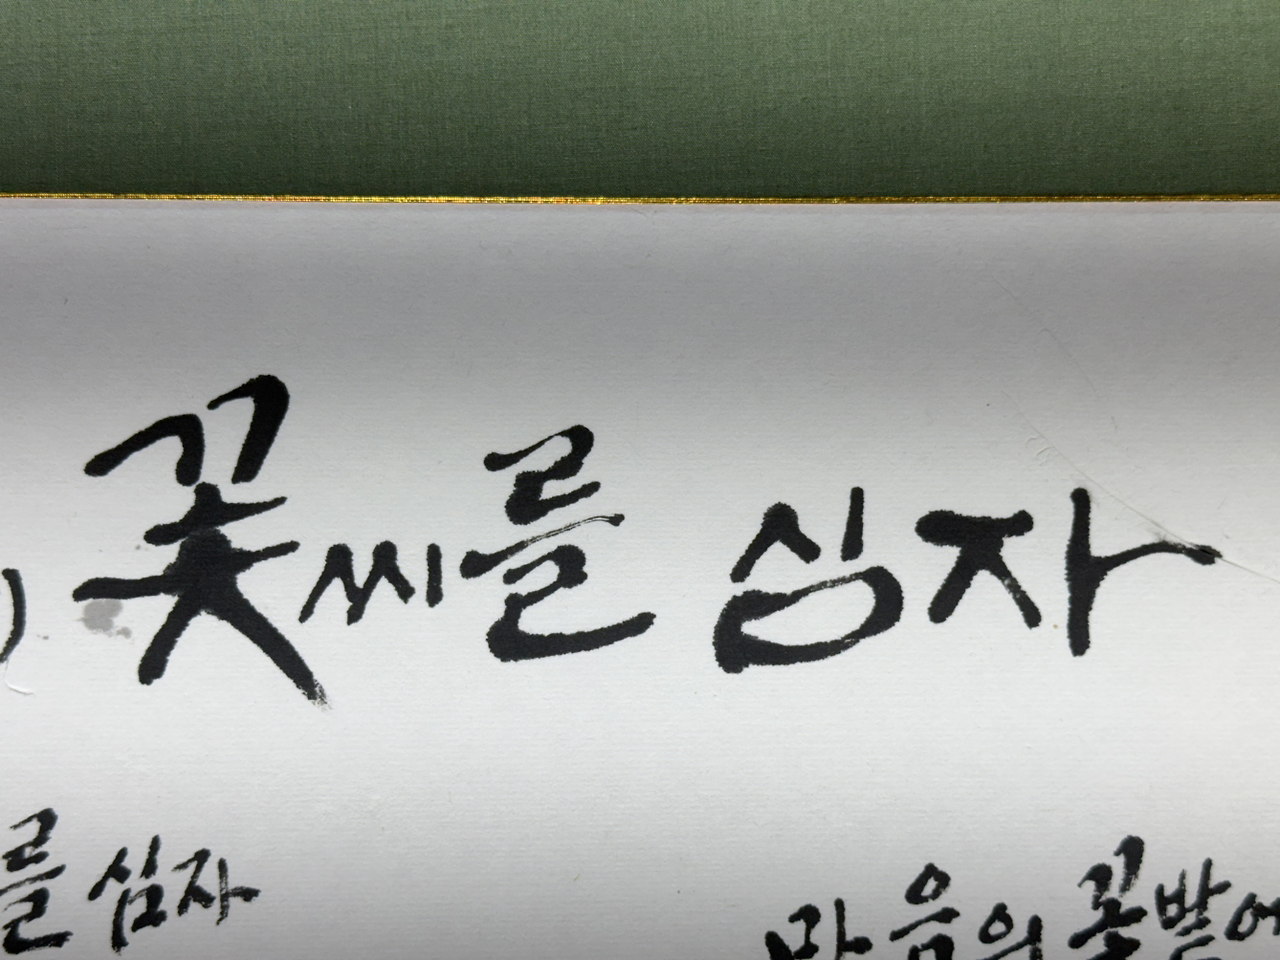 꽃씨를 심자
를 심자 마음의 꽃밭에